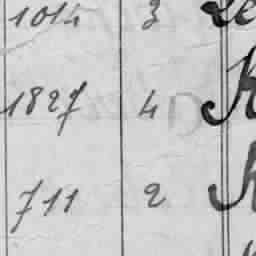 1014 3 Le
1827 4 K
711 2 K